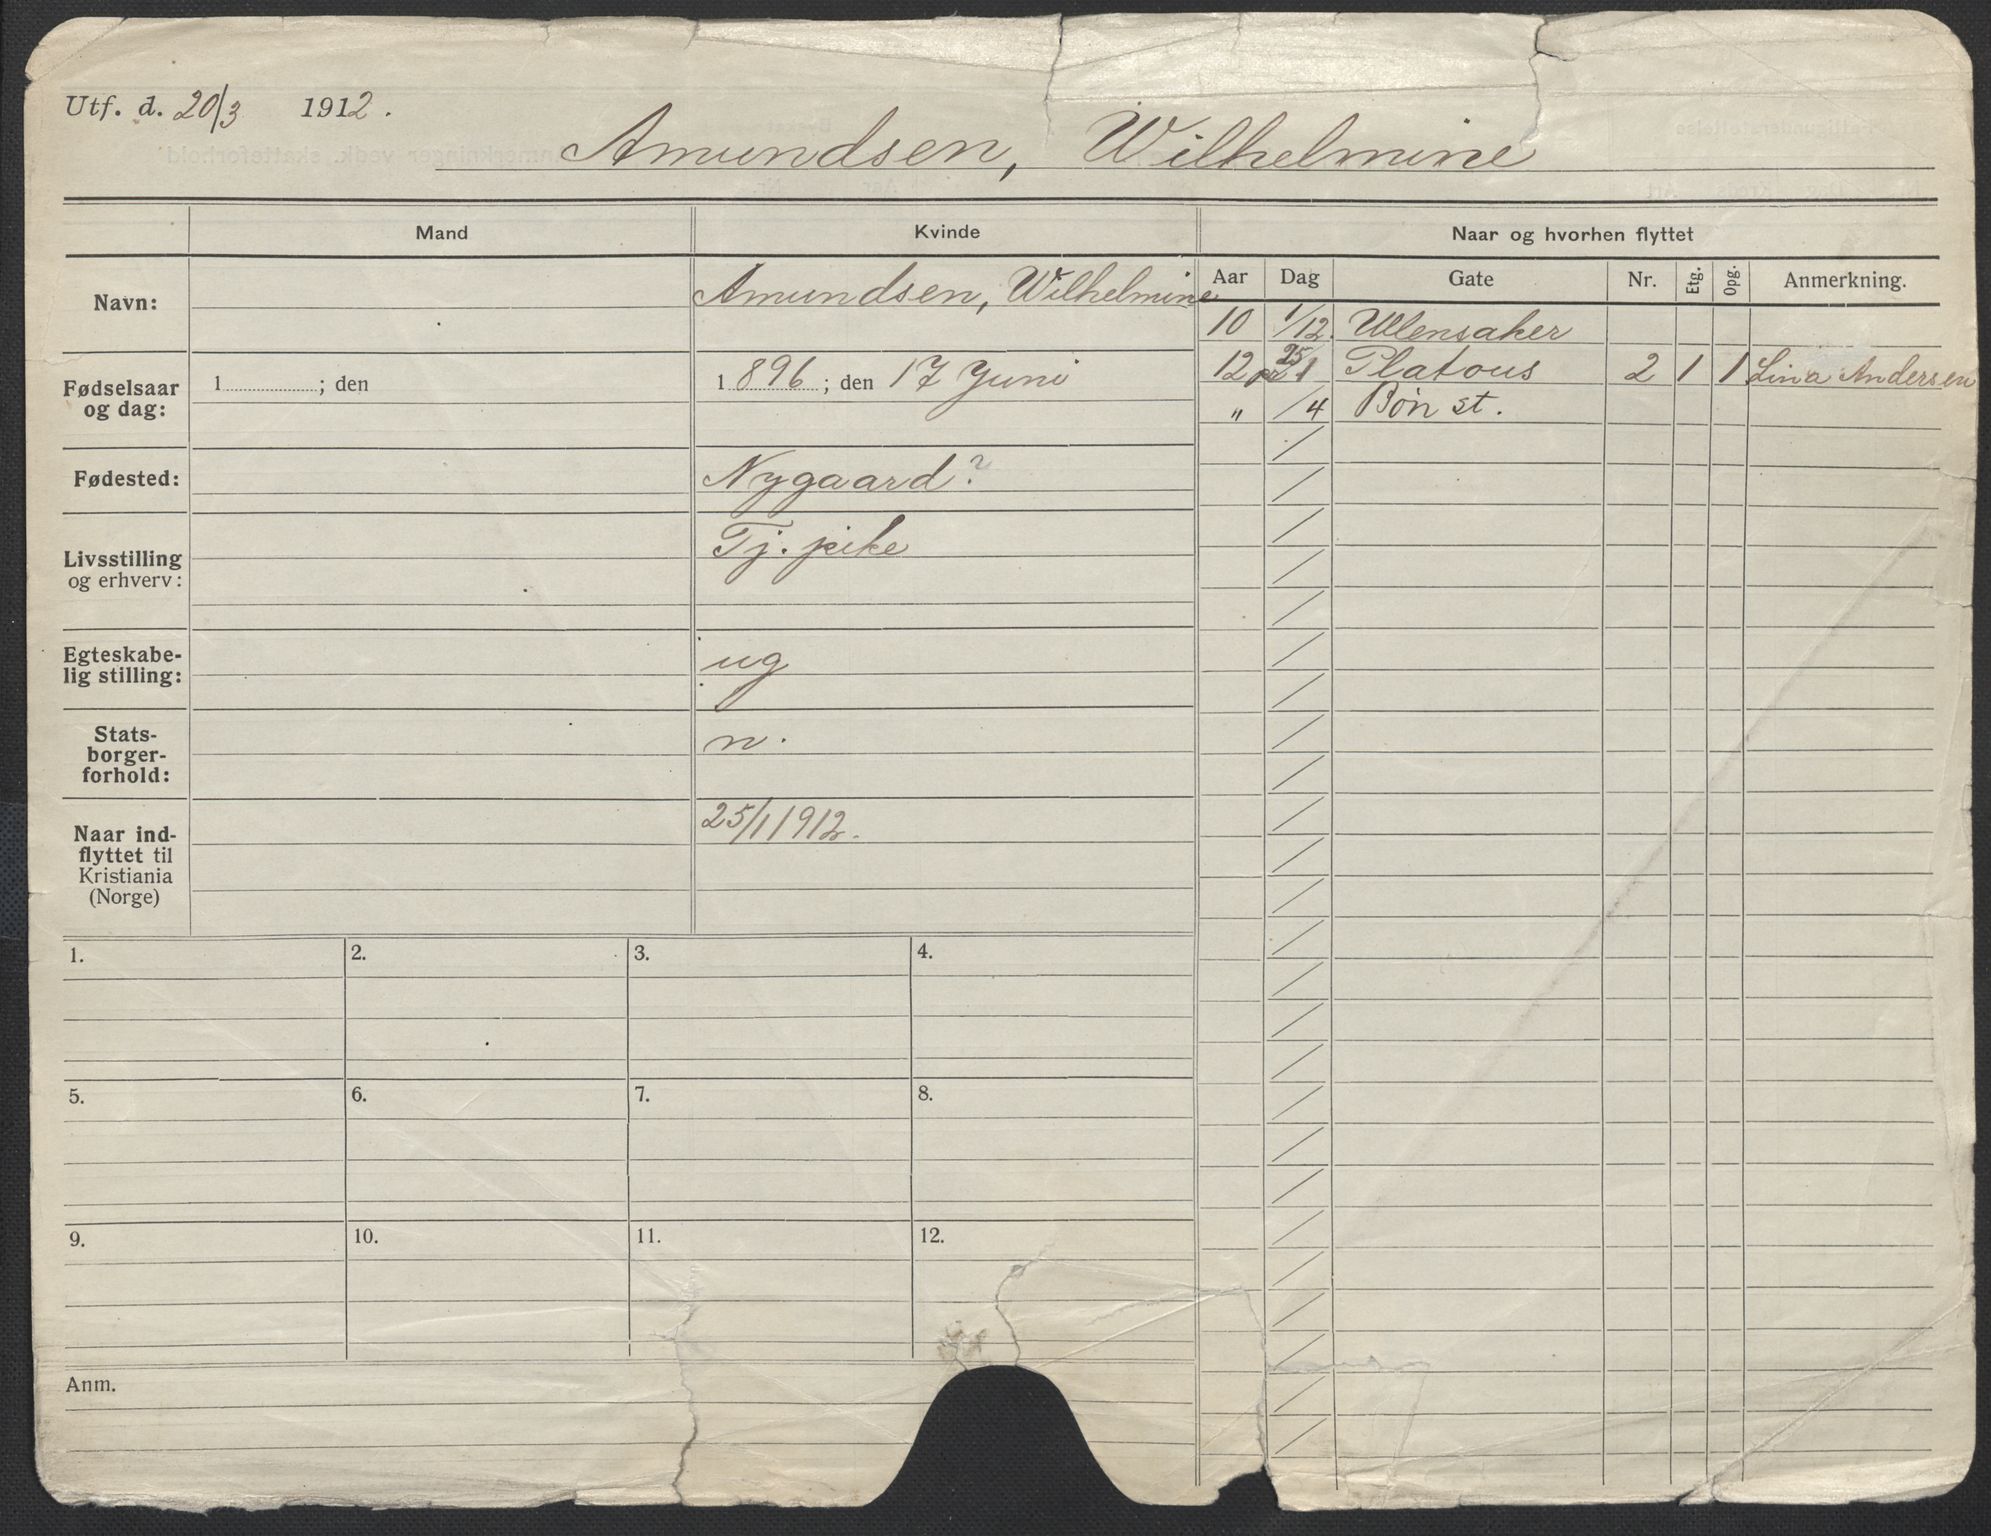 Utf. d. 20/3 1912.
Amundsen, Wilhelmine
Mand
Kvinde
Naar og hvorhen flyttet
Navn:
Amundsen, Wilhelmine
Fødselsaar og dag:
1 ; den
1896; den 17 Juni
Fødested:
Nygaard?
Livsstilling og erhverv:
Tj. pike
Egteskabe-
lig stilling:
ug
Stats-
borger-
forhold:
n.
Naar ind-
flyttet til
Kristiania
(Norge)
25/1 1912.
Aar Dag Gate Nr. Etg. Opg. Anmerkning.
10 1/12 Ullensaker
12 25/1 Platous 2 1 1 Lina Andersen
" /4 Bøn st.
1. 2. 3. 4.
5. 6. 7. 8.
9. 10. 11. 12.
Anm.